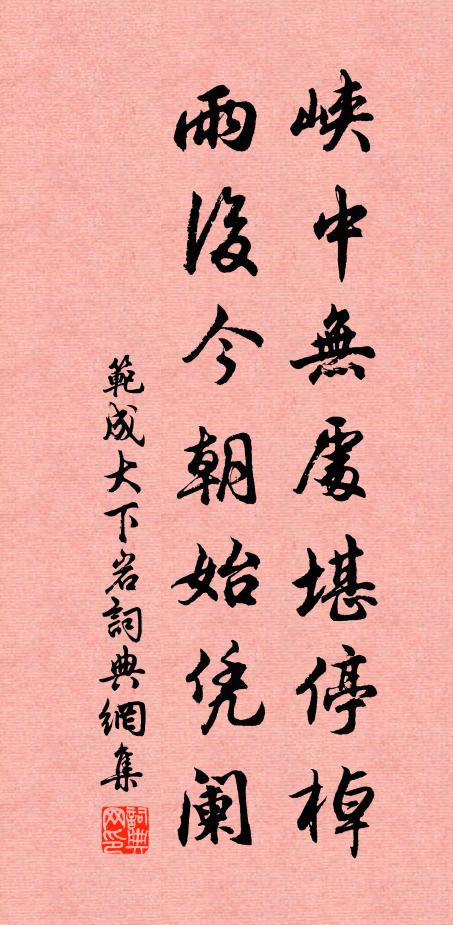 峽中無處堪停棹
雨後今朝始凭阑
範成大下岩詞典網集
詞典网印